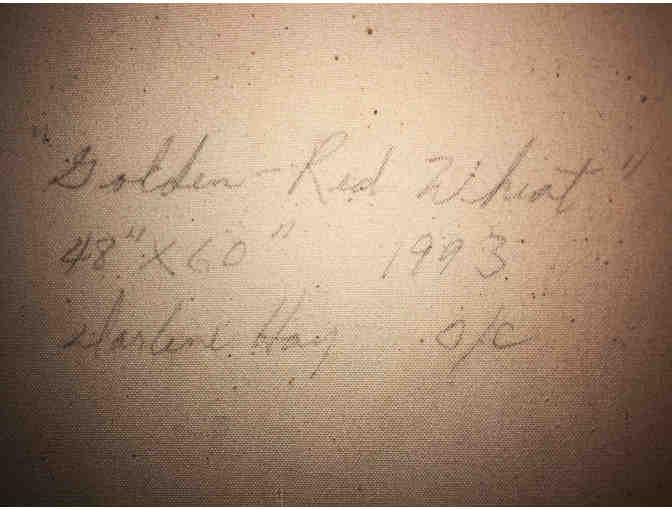 "Golden-Red Wheat"
48" X 60" 1993
Darlene Hay o/c